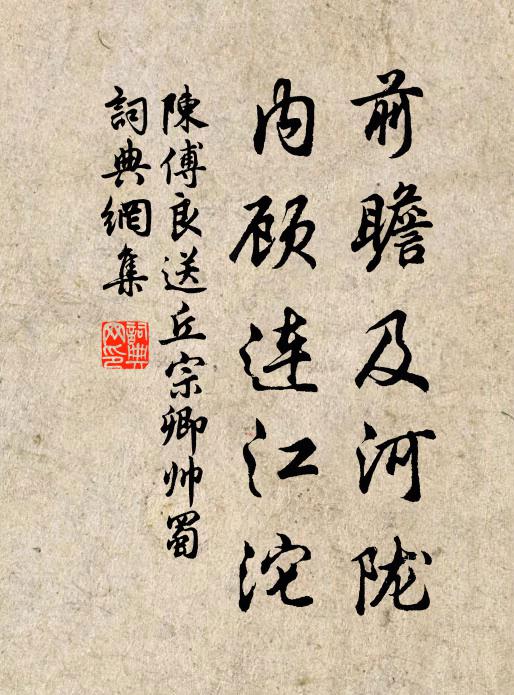 前瞻及河陇
内顾连江沱
陳傅良送丘宗卿帅蜀
詞典網集
詞典网印